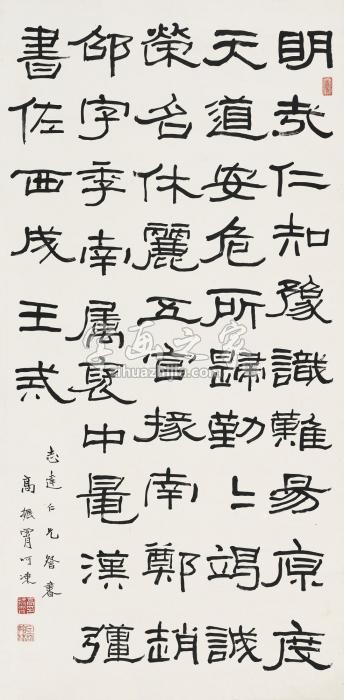 明哉仁知豫識難易原度
天道安危所歸勤〻竭誠
榮名休麗五官掾南鄭趙
邵字季南属褒中鼂漢彊
書佐西成王戒
志達仁兄
高振霄呵凍
字画之家
zihuazhijia.com